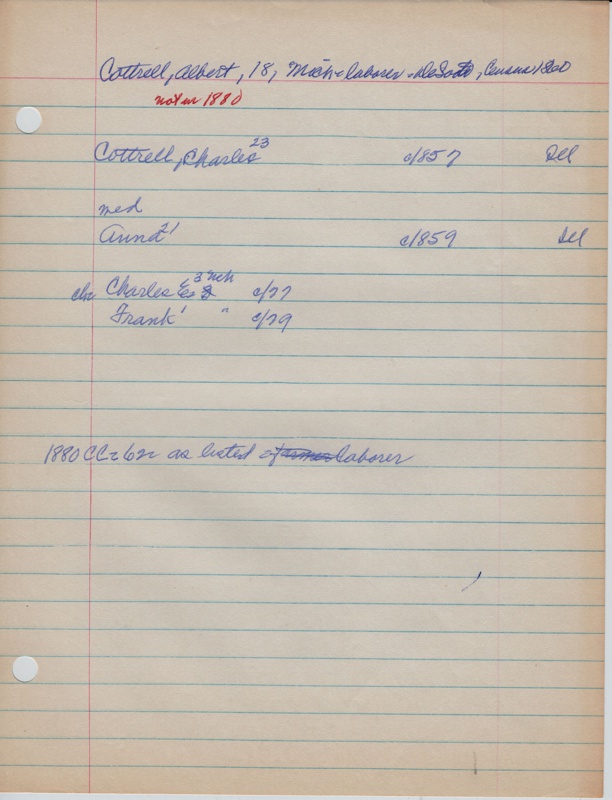 Cottrell, Albert, 18, Mich - laborer - DeSoto, Census 1860
not in 1880
Cottrell, Charles 23 c/857 Del
med
Anna 21 c/859 Del
ch: Charles E 3 c/77
Frank 1 " c/79
1880 CC 62 as listed laborer